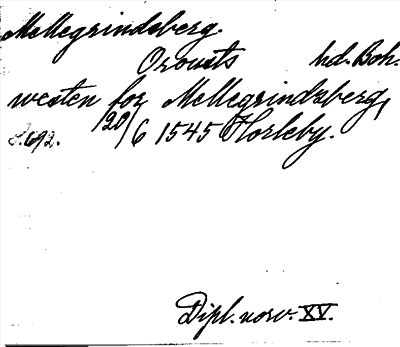 Mellegrindsberg.
Orousts hd. Boh.
westen for Mellegrindzberg,
S. 692. 20/6 1545 Horleby.
Dipl. norv. XV.